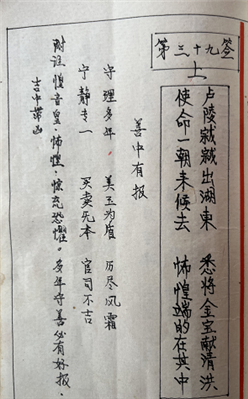 第三十九签
上
卢陵出湖東 悉将金宝献清洪
使命一朝未候去 怖惶端的在其中
善中有报
守理多年 美玉为眉 历尽风霜
宁静专一 买卖无本 官司不吉
附注：惶音皇，怖惶，惊充恐惧。多年守善必有好报。
吉中带凶